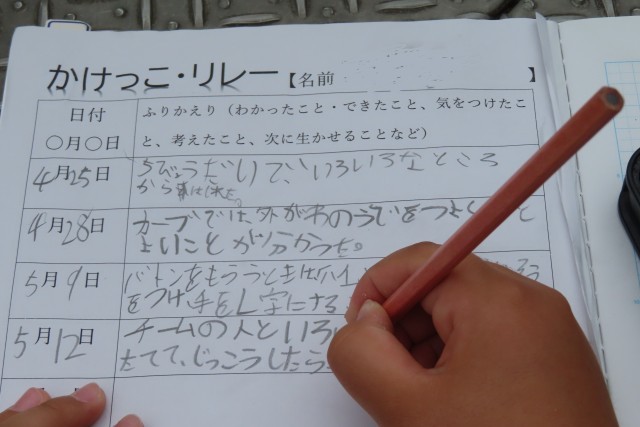 かけっこ・リレー【名前 】
日付
〇月〇日
ふりかえり（わかったこと・できたこと、気をつけたこ
と、考えたこと、次に生かせることなど）
4月25日
ちょうだいで、いろいろなところ
から
4月28日
カーブでは、外がわのうでをつよく と
よいことが分かった。
5月9日
バトンをもらうときは
をつけ、手をL字にする
5月12日
チームの人といろ
たてて、じっこうしたら